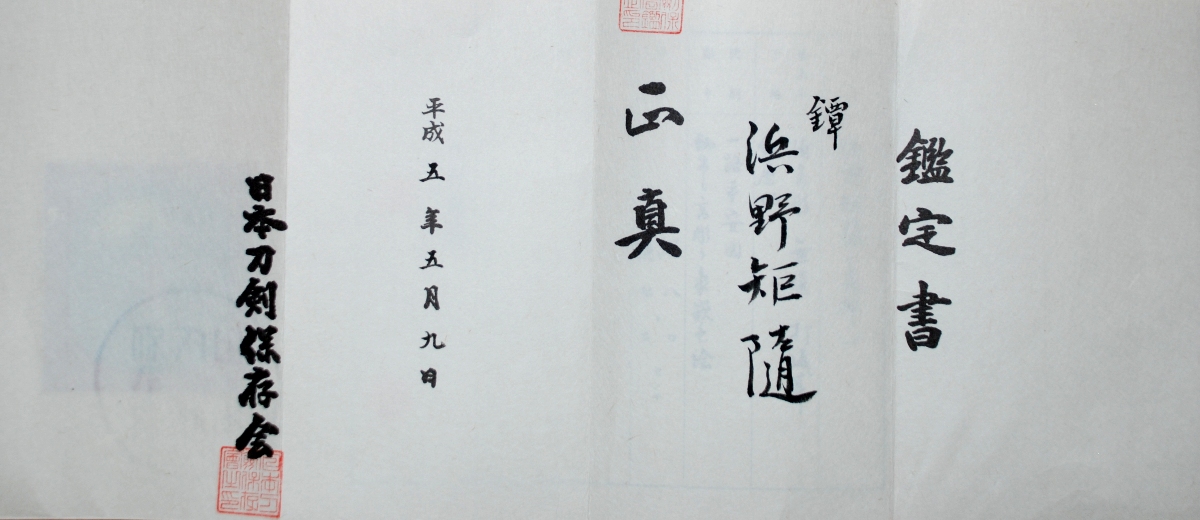 鑑定書
鐔
浜野矩随
正真
平成五年五月九日
日本刀剣保存会